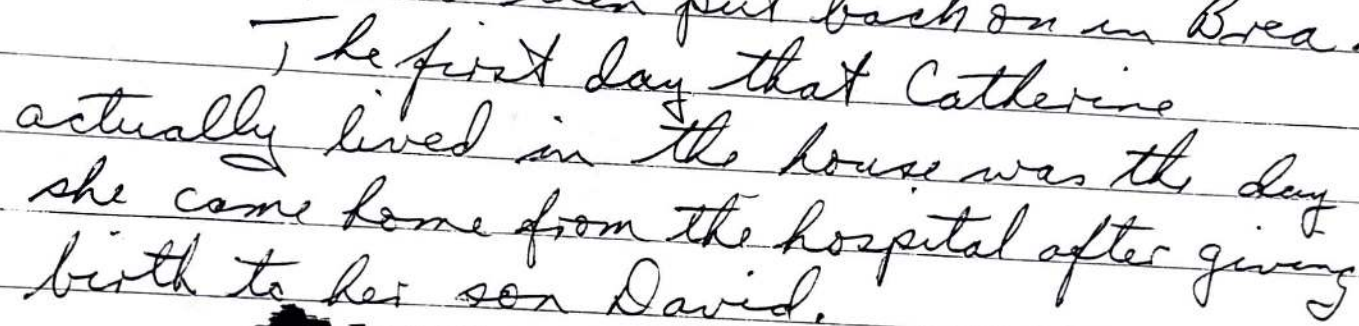 put back on in Brea.
The first day that Catherine
actually lived in the house was the day
she came home from the hospital after giving
birth to her son David.